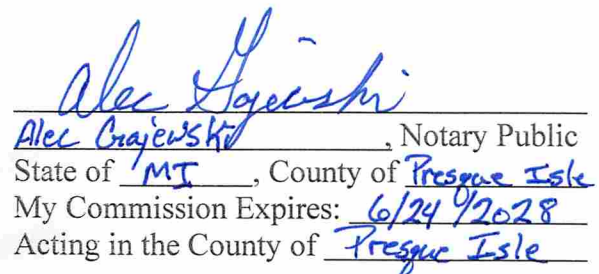 Alec Gajewski
Alec Gajewski, Notary Public
State of MI, County of Presque Isle
My Commission Expires: 6/24/2028
Acting in the County of Presque Isle